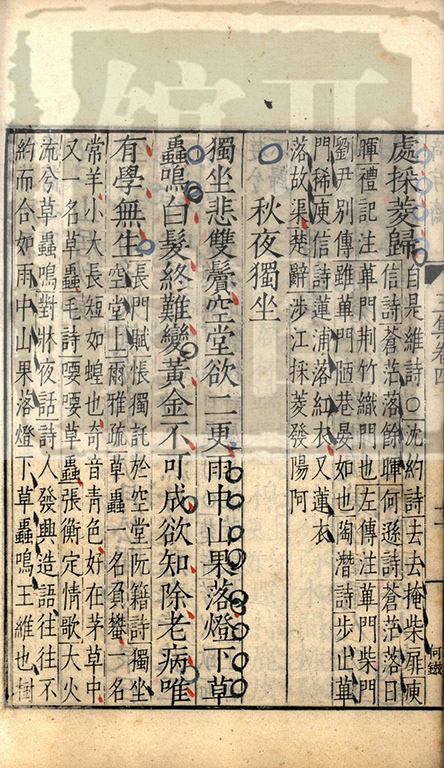 處採菱歸自是維詩○沈約詩去去掩柴扉庾
信詩蒼茫落餘暉何遜詩蒼茫落日
暉禮記注蓽門荆竹織門也左傳注蓽門柴門
劉尹别傳雖蓽門陋巷晏如也陶潛詩步止蓽
門稀庾信詩蓮浦落紅衣又蓮衣
落故渠楚辭涉江採菱發陽阿
秋夜獨坐
獨坐悲雙鬢空堂欲二更雨中山果落燈下草
蟲鳴白髮終難變黃金不可成欲知除老病唯
有學無生長門賦悵獨託於空堂阮籍詩獨坐
空堂上爾雅疏草蟲一名負蠜一名
常羊小大長短如蝗也奇音青色好在茅草中
又一名草蟲毛詩喓喓草蟲張衡定情歌大火
流兮草蟲鳴對牀夜話詩人發興造語往往不
約而合如雨中山果落燈下草蟲鳴王維也樹
何鐵